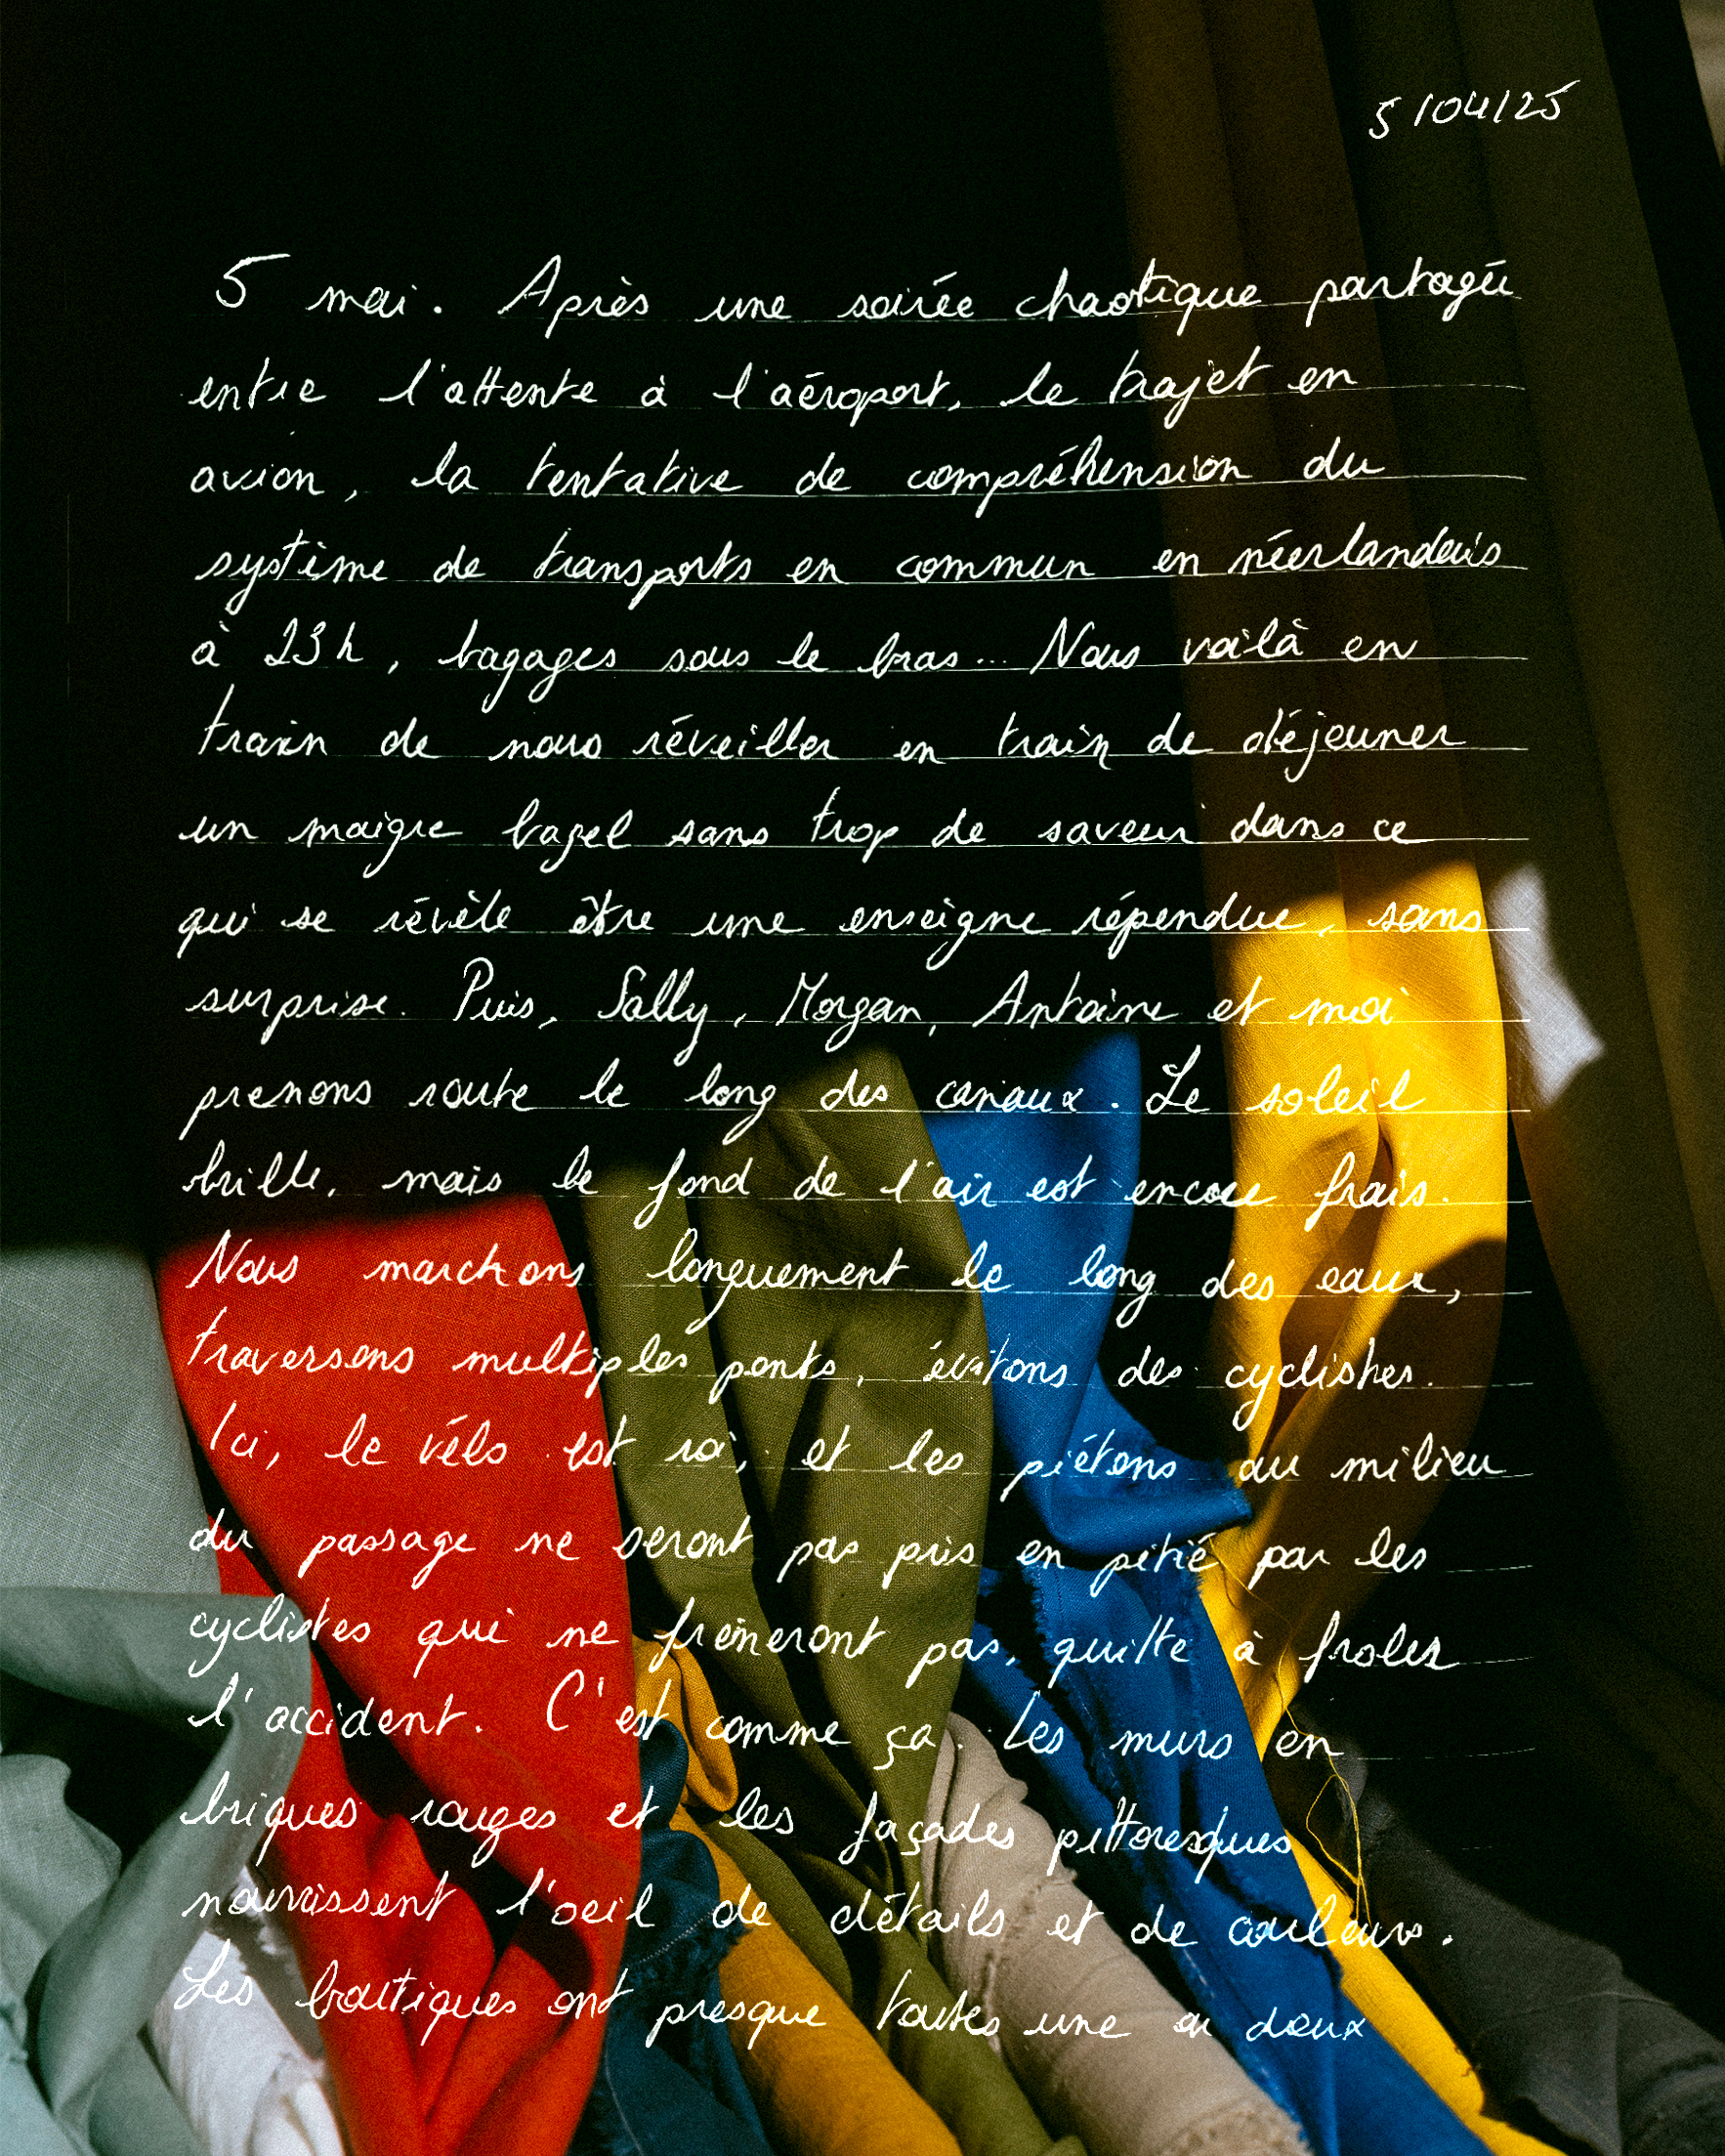 5/04/25
5 mai. Après une soirée chaotique partagée
entre l'attente à l'aéroport, le trajet en
avion, la tentative de compréhension du
système de transports en commun en néerlandais
à 23h, bagages sous le bras... Nous voilà en
train de nous réveiller en train de déjeuner
un maigre bagel sans trop de saveur dans ce
qui se révèle être une enseigne répendue, sans
surprise. Puis, Sally, Morgan, Antoine et moi
prenons route le long des canaux. Le soleil
brille, mais le fond de l'air est encore frais.
Nous marchons longuement le long des eaux,
traversons multiples ponts, évitons des cyclistes.
Ici, le vélo est roi, et les piétons au milieu
du passage ne seront pas pris en pitié par les
cyclistes qui ne freineront pas, quitte à froler
l'accident. C'est comme ça. Les murs en
briques rouges et les façades pittoresques
nourrissent l'oeil de détails et de couleurs.
Les boutiques ont presque toutes une ou deux